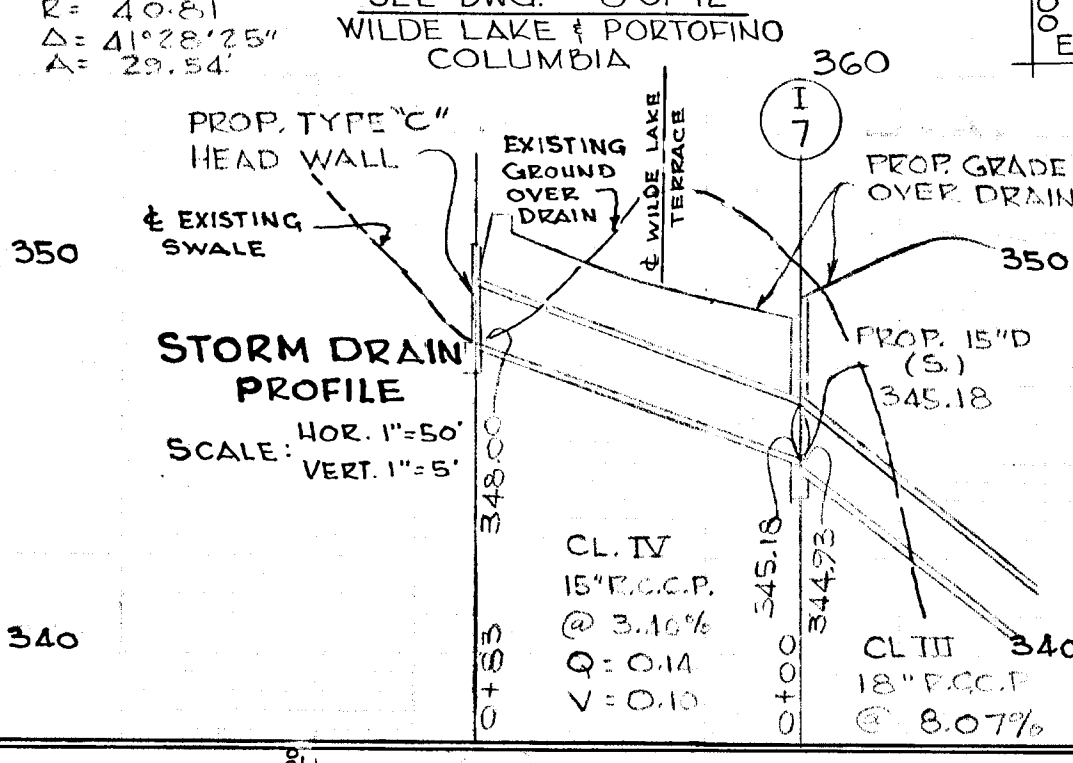 R= 40.81
Δ= 41°28'25"
A= 29.54'
SEE DWG. 8 OF 12
WILDE LAKE & PORTOFINO
COLUMBIA
360
I
7
PROP. TYPE "C"
HEAD WALL
EXISTING
GROUND
OVER
DRAIN
℄ WILDE LAKE
TERRACE
PROP. GRADE
OVER DRAIN
℄ EXISTING
SWALE
350
350
STORM DRAIN
PROFILE
SCALE: HOR. 1"=50'
VERT. 1"=5'
PROP. 15"D
(S.)
345.18
348.00
345.18
344.93
CL. IV
15" R.C.C.P.
@ 3.40%
Q = 0.14
V = 0.10
340
340
0+83
0+00
CL III
18" R.C.C.P
@ 8.07%